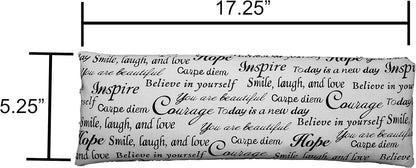 17.25”
5.25”
Smile, laugh, and love Hope Inspire Today is a new day
You are beautiful Carpe diem
Inspire Believe in yourself Smile, laugh, and love
Carpe diem You are beautiful Carpe diem
Smile, laugh, and love Courage Today is a new day
You are beautiful Believe in yourself
Hope Smile, laugh, and love Hope Carpe diem
and love Carpe diem Courage Believe in yourself